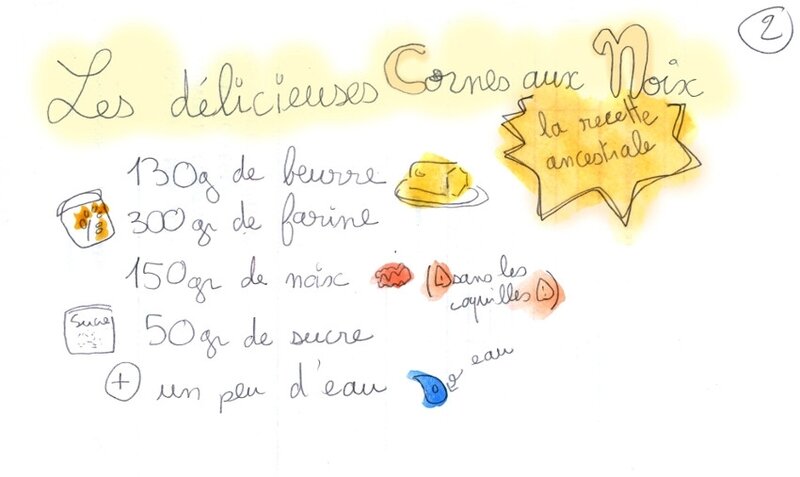 2
Les délicieuses Cornes aux Noix
la recette
ancestrale
130g de beurre
300gr de farine
150gr de noix
(! sans les
coquilles !)
Sucre
50gr de sucre
+ un peu d'eau
eau